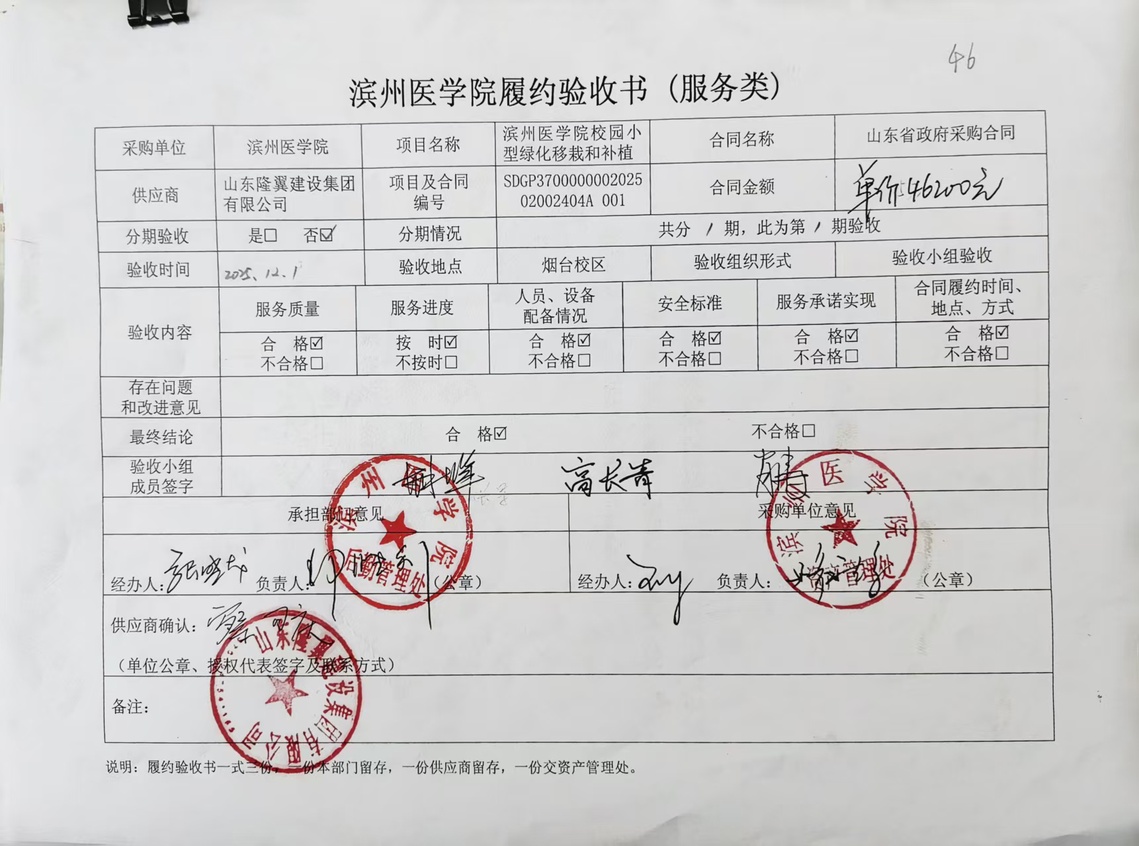 46
滨州医学院履约验收书（服务类）
采购单位 滨州医学院 项目名称 滨州医学院校园小型绿化移栽和补植 合同名称 山东省政府采购合同
供应商 山东隆翼建设集团有限公司 项目及合同编号 SDGP370000000202502002404A 001 合同金额 单价:46200元
分期验收 是☐ 否☑ 分期情况 共分 / 期，此为第 / 期验收
验收时间 2025.12.1 验收地点 烟台校区 验收组织形式 验收小组验收
验收内容 服务质量 服务进度 人员、设备配备情况 安全标准 服务承诺实现 合同履约时间、地点、方式
合 格☑ 按 时☑ 合 格☑ 合 格☑ 合 格☑ 合 格☑
不合格☐ 不按时☐ 不合格☐ 不合格☐ 不合格☐ 不合格☐
存在问题和改进意见
最终结论 合 格☑ 不合格☐
验收小组成员签字 高长青
承担部门意见 采购单位意见
经办人: 负责人: （公章） 经办人: 负责人: （公章）
滨州医学院
后勤管理处
滨州医学院
资产管理处
供应商确认:
（单位公章、授权代表签字及联系方式）
山东隆翼建设集团有限公司
备注:
说明: 履约验收书一式三份，一份本部门留存，一份供应商留存，一份交资产管理处。